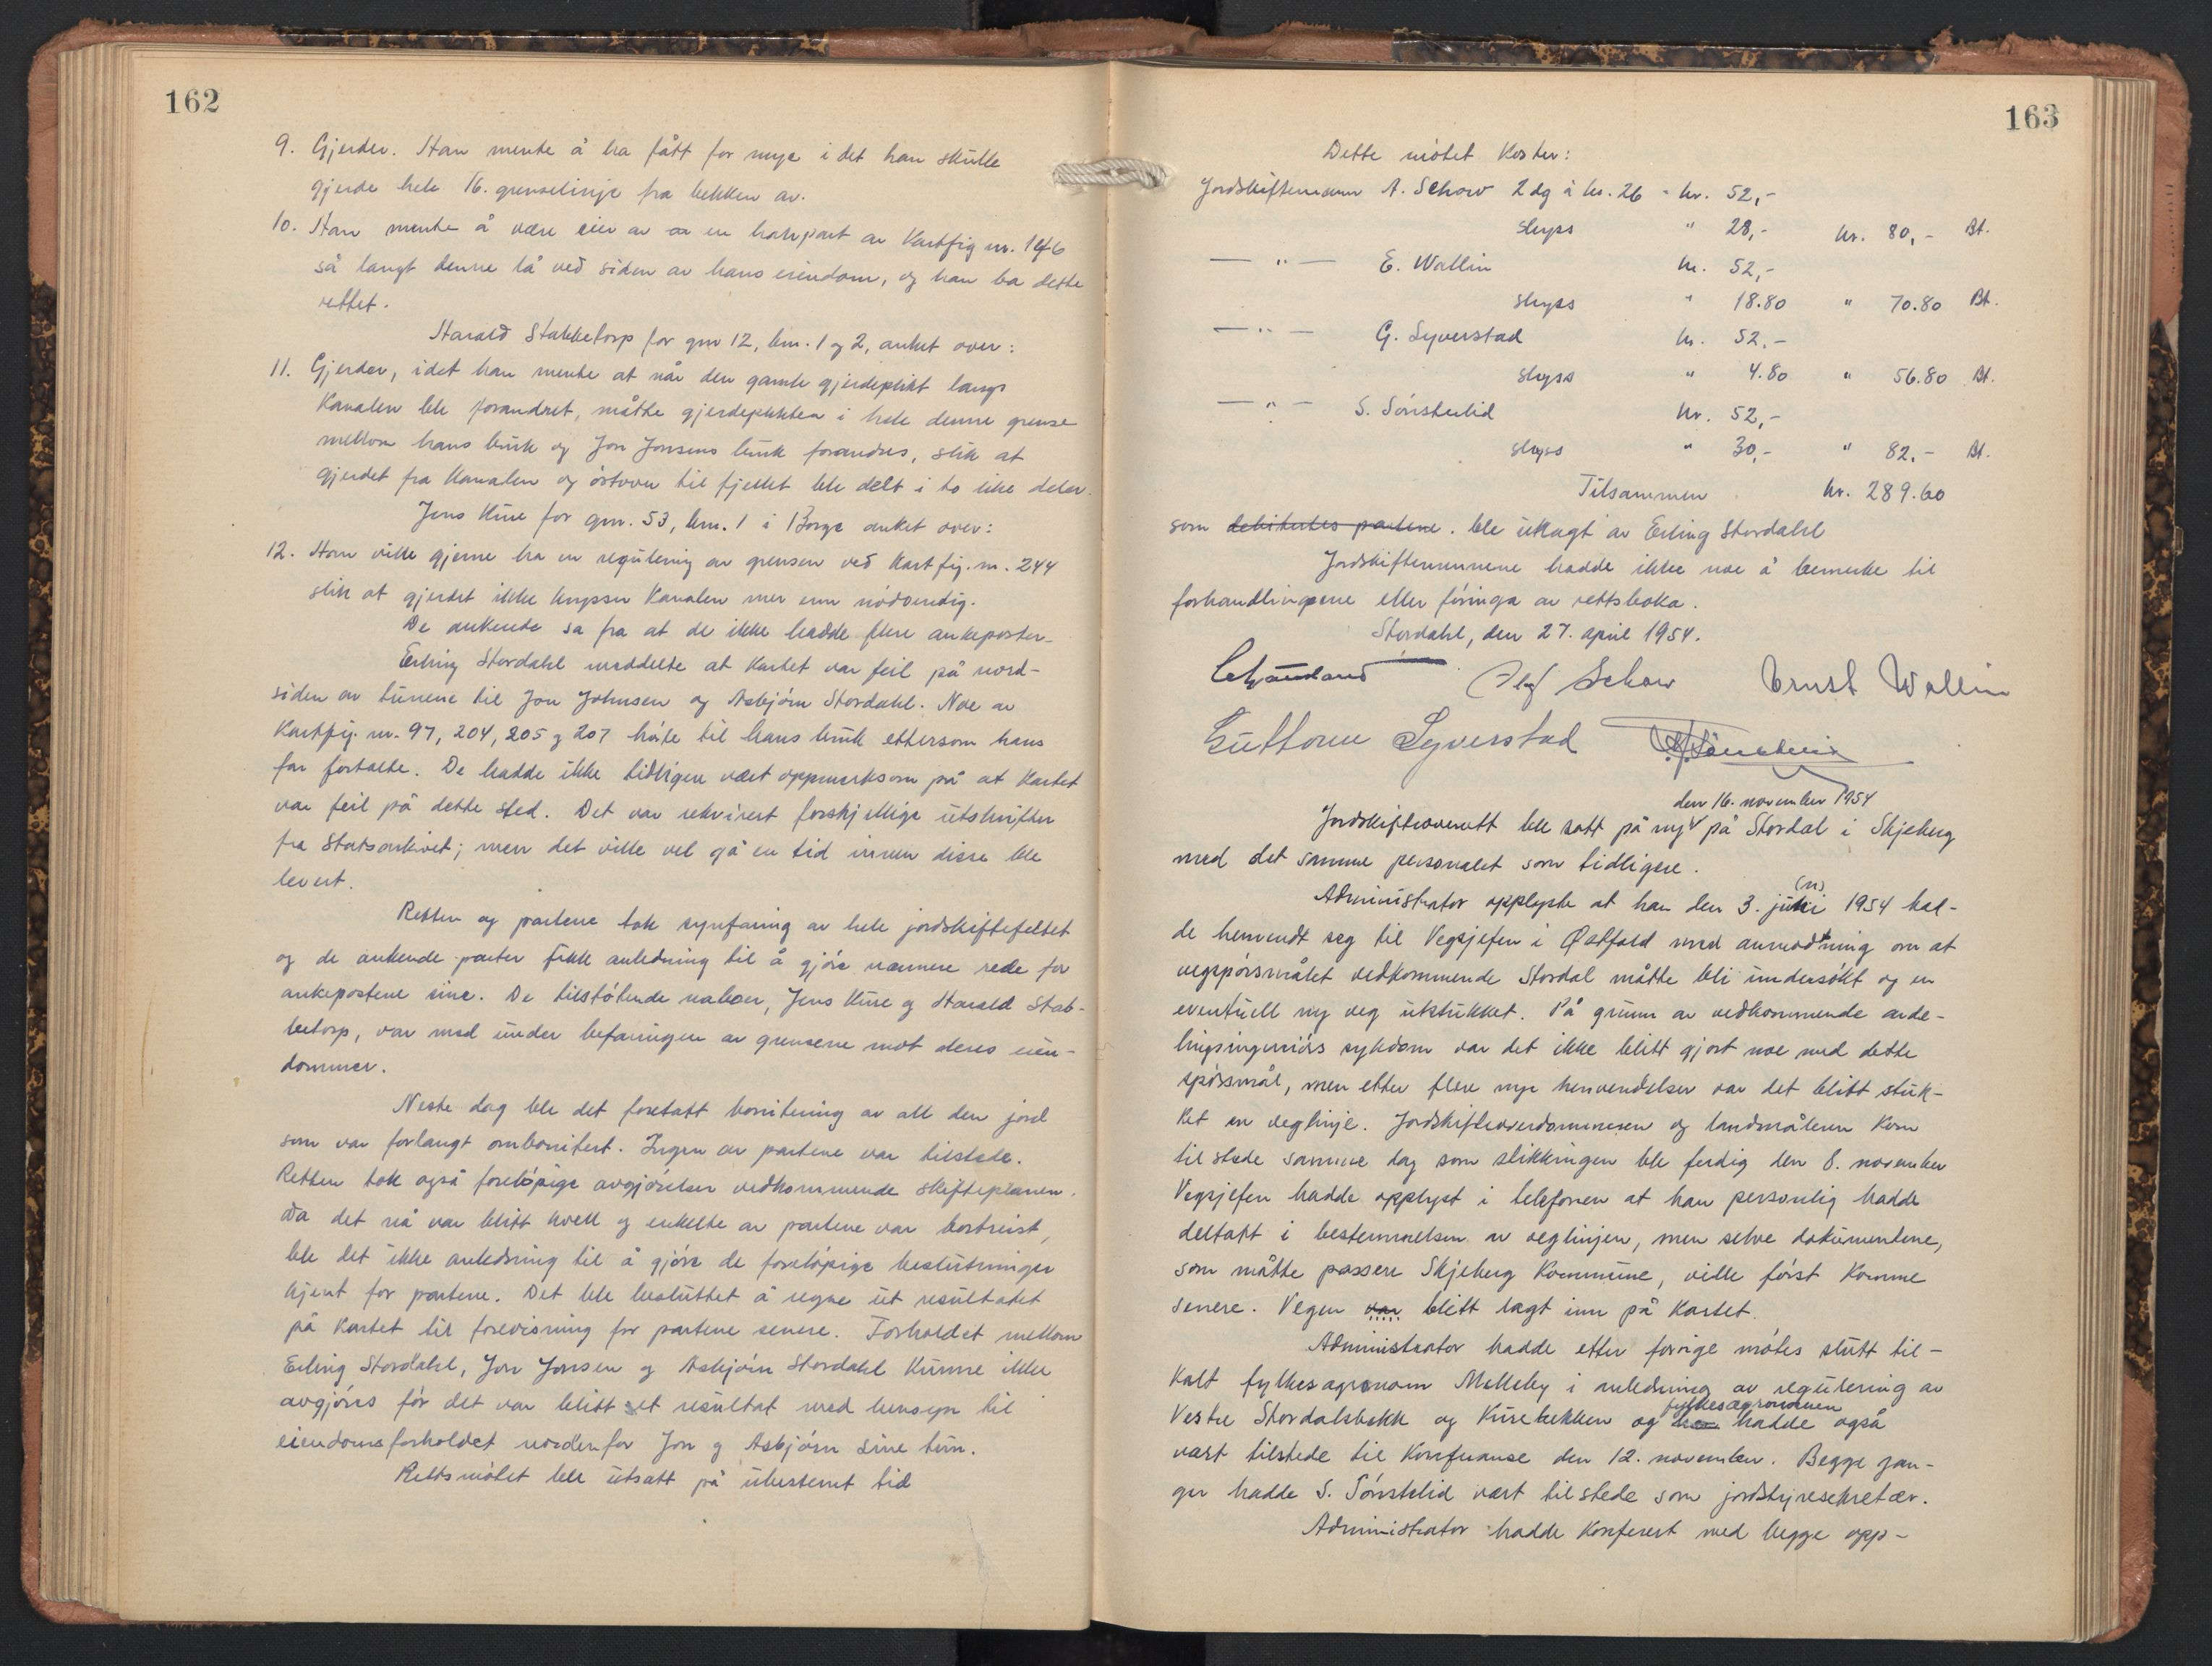 162
9. Gjerder. Han mente å ha fått for mye i det han skulle
gjerde hele 16. grenselinje fra bekken av.
10. Han mente å være eier av en halvpart av Kartfig nr. 146
så langt denne lå ved siden av hans eiendom, og han ba dette
rettet.
Harald Stabbetorp for gnr 12, bnr. 1 og 2, anket over:
11. Gjerder, idet han mente at når den gamle gjerdeplikt langs
Kanalen ble forandret, måtte gjerdeplikten i hele denne grense
mellom hans bruk og Jon Jonsens bruk forandres, slik at
gjerdet fra Kanalen og östover til fjellet ble delt i to like deler.
Jens Kure for gnr. 53, bnr. 1 i Borge anket over:
12. Han ville gjerne ha en regulering av grensen ved Kartfig. nr. 244
slik at gjerdet ikke krysser Kanalen mer enn nödvendig.
De ankende sa fra at de ikke hadde flere ankeposter.
Erling Stordahl meddelte at Kartet var feil på nord-
siden av tunene til Jon Johnsen og Asbjörn Stordahl. Noe av
Kartfig. nr. 97, 204, 205 og 207 hörte til hans bruk ettersom hans
far fortalte. De hadde ikke tidligere vært oppmerksom på at Kartet
var feil på dette sted. Det var rekvirert forskjellige utskrifter
fra Statsarkivet; men det ville vel gå en tid innen disse ble
levert.
Retten og partene tok synfaring av hele jordskiftefeltet
og de ankende parter fikk anledning til å gjöre nærmere rede for
ankepostene sine. De tilstötende naboer, Jens Kure og Harald Stab-
betorp, var med under befaringen av grensene mot deres eien-
dommer.
Neste dag ble det foretatt bonitering av all den jord
som var forlangt ombonitert. Ingen av partene var tilstede.
Retten tok også forelöpige avgjörelser vedkommende skifteplanen.
Da det nå var blitt kvell og enkelte av partene var bortreist,
ble det ikke anledning til å gjöre de forelöpige beslutninger
kjent for partene. Det ble besluttet å regne ut resultatet
på Kartet til forevisning for partene senere. Forholdet mellom
Erling Stordahl, Jon Jonsen og Asbjörn Stordahl Kunne ikke
avgjöres för det var blitt et resultat med hensyn til
eiendomsforholdet nordenfor Jon og Asbjörn sine tun.
Rettsmötet ble utsatt på ubestemt tid
163
Dette mötet Koster:
Jordskiftemann A. Schow 2 dg à kr. 26 - kr. 52,-
skyss " 28,- kr. 80,- Bt.
— " — E. Wallin kr. 52,-
skyss " 18.80 " 70.80 Bt.
— " — G. Syverstad kr. 52.-
skyss " 4.80 " 56.80 Bt.
— " — S. Sönsterlid kr. 52,-
skyss " 30,- " 82.- Bt.
Tilsammen kr. 289.60
som debiteres partene. ble utlagt av Erling Stordahl
Jordskiftemennene hadde ikke noe å bemerke til
forhandlingene eller föringa av rettsboka.
Stordahl, den 27. april 1954.
Schow Ernst Wallin
Guttorm Syverstad
den 16. november 1954
Jordskifteoverrett ble satt på ny på Stordal i Skjeberg
med det samme personalet som tidligere.
(n)
Administrator opplyste at han den 3. juni 1954 had-
de henvendt seg til Vegsjefen i Østfold med anmodning om at
vegspörsmålet vedkommende Stordal måtte bli undersökt og en
eventuell ny veg utstukket. På grunn av vedkommende avde-
lingsingeniörs sykdom var det ikke blitt gjort noe med dette
spörsmål, men etter flere nye henvendelser var det blitt stuk-
ket en veglinje. Jordskifteoverdommeren og landmåleren Kom
tilstede samme dag som stikkingen ble ferdig den 8. november
Vegsjefen hadde opplyst i telefonen at han personlig hadde
deltatt i bestemmelsen av veglinjen, men selve dokumentene,
som måtte passere Skjeberg Kommune, ville först Komme
senere. Vegen var blitt lagt inn på Kartet.
Administrator hadde etter forrige mötes slutt til-
Kalt fylkesagronom Melleby i anledning av regulering av
fylkesagronomen
Vestre Stordalsbekk og Kurebekken og han hadde også
vært tilstede til Konferanse den 12. november. Begge gan-
ger hadde S. Sönstelid vært tilstede som jordstyresekretær.
Administrator hadde Konferert med begge opp-